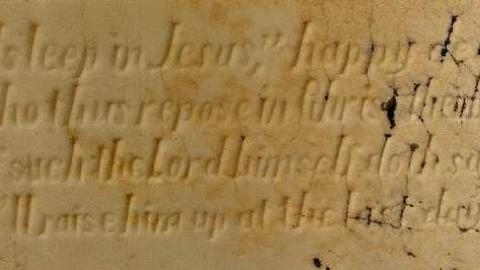 sleep in Jesus," happy de
ho thus repose in Christ them
such the Lord himself doth sa
'll raise him up at the last day